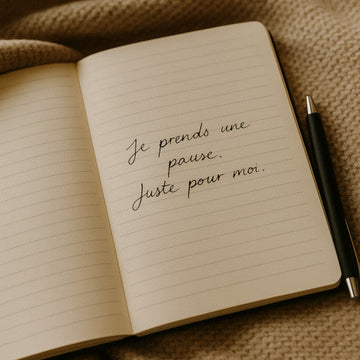 Je prends une
pause.
Juste pour moi.